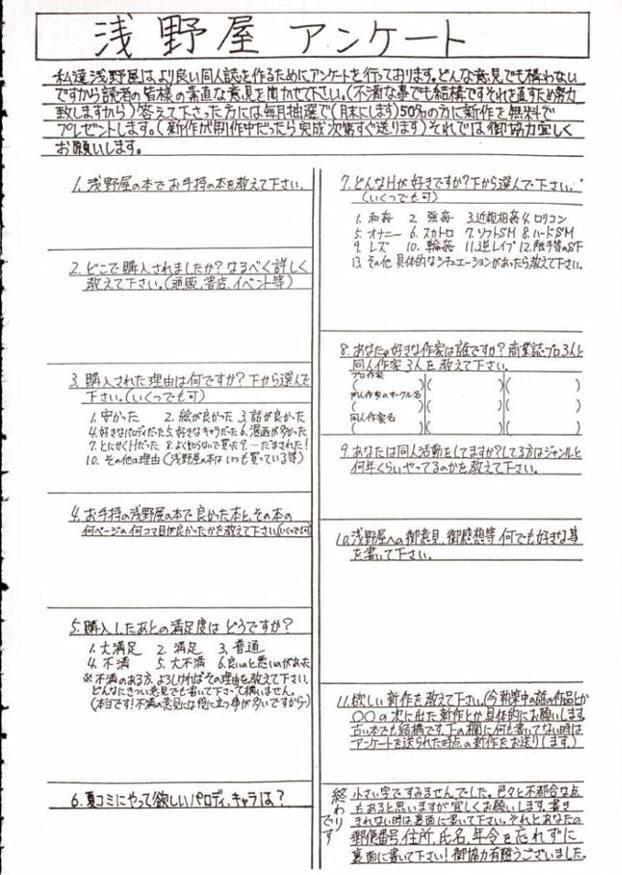 浅野屋 アンケート
私達浅野屋は、より良い同人誌を作るためにアンケートを行っております。どんな意見でも構わない
ですから読者の皆様の素直な意見を聞かせて下さい。(不満な事でも結構ですそれを直すため努力
致しますから)答えて下さった方には毎月抽選で(月末にします)50名の方に新作を無料で
プレゼントします。(新作が制作中だったら完成次第すぐ送ります)それでは御協力宜しく
お願いします。
1. 浅野屋の本でお手持の本を教えて下さい。
2. どこで購入されましたか?なるべく詳しく
教えて下さい。(通販、書店、イベント等)
3. 購入された理由は何ですか?下から選んで
下さい。(いくつでも可)
1. 安かった 2. 絵が良かった 3. 話が良かった
4. 好きなパロディだった 5. 好きなキャラだった 6. 漫画が多かった
7. とにかくHだった 8. よく知らないで買った 9. だまされた!
10. その他の理由(浅野屋の本はいつも買っている等)
4. お手持の浅野屋の本で良かった本と、その本の
何ページの何コマ目が良かったかを教えて下さい(いくつでも可)
5. 購入したあとの満足度はどうですか?
1. 大満足 2. 満足 3. 普通
4. 不満 5. 大不満 6. 良いのと悪いのがあった
※不満のある方、よろしければその理由を教えて下さい。
どんなにきつい意見でも書いて下さって構いません。
(本当です!不満の意見には役に立つ事が多いですから)
6. 夏コミにやって欲しいパロディ、キャラは?
7. どんなHが好きですか?下から選んで下さい。
(いくつでも可)
1. 和姦 2. 強姦 3. 近親相姦 4. ロリコン
5. オナニー 6. スカトロ 7. ソフトSM 8. ハードSM
9. レズ 10. 輪姦 11. 逆レイプ 12. 触手等のSF
13. その他 具体的なシチュエーションがあったら教えて下さい。
8. あなたの好きな作家は誰ですか?商業誌・プロ3人と
同人作家3人を教えて下さい。
プロ作家
( )( )( )
同人作家のサークル名
( )( )( )
同人作家名
( )( )( )
9. あなたは同人活動をしてますか?してる方はジャンルと
何年くらいやってるのかを教えて下さい。
10. 浅野屋への御意見、御感想等何でも好きな事
を書いて下さい。
11. 欲しい新作を教えて下さい。(今募集中の誰の作品とか
〇〇の次に出た新作とか具体的にお願いします。
古い本でも結構です。下の欄に何も書いてない時は
アンケートを送られた時点の新作をお送りします。)
終わりです
小さい字ですみませんでした。色々と不都合な点
もあると思いますが宜しくお願いします。書き
きれない時は裏面に書いて下さい。それとあなたの
郵便番号、住所、氏名、年令を忘れずに
裏面に書いて下さい!御協力有難うございました。